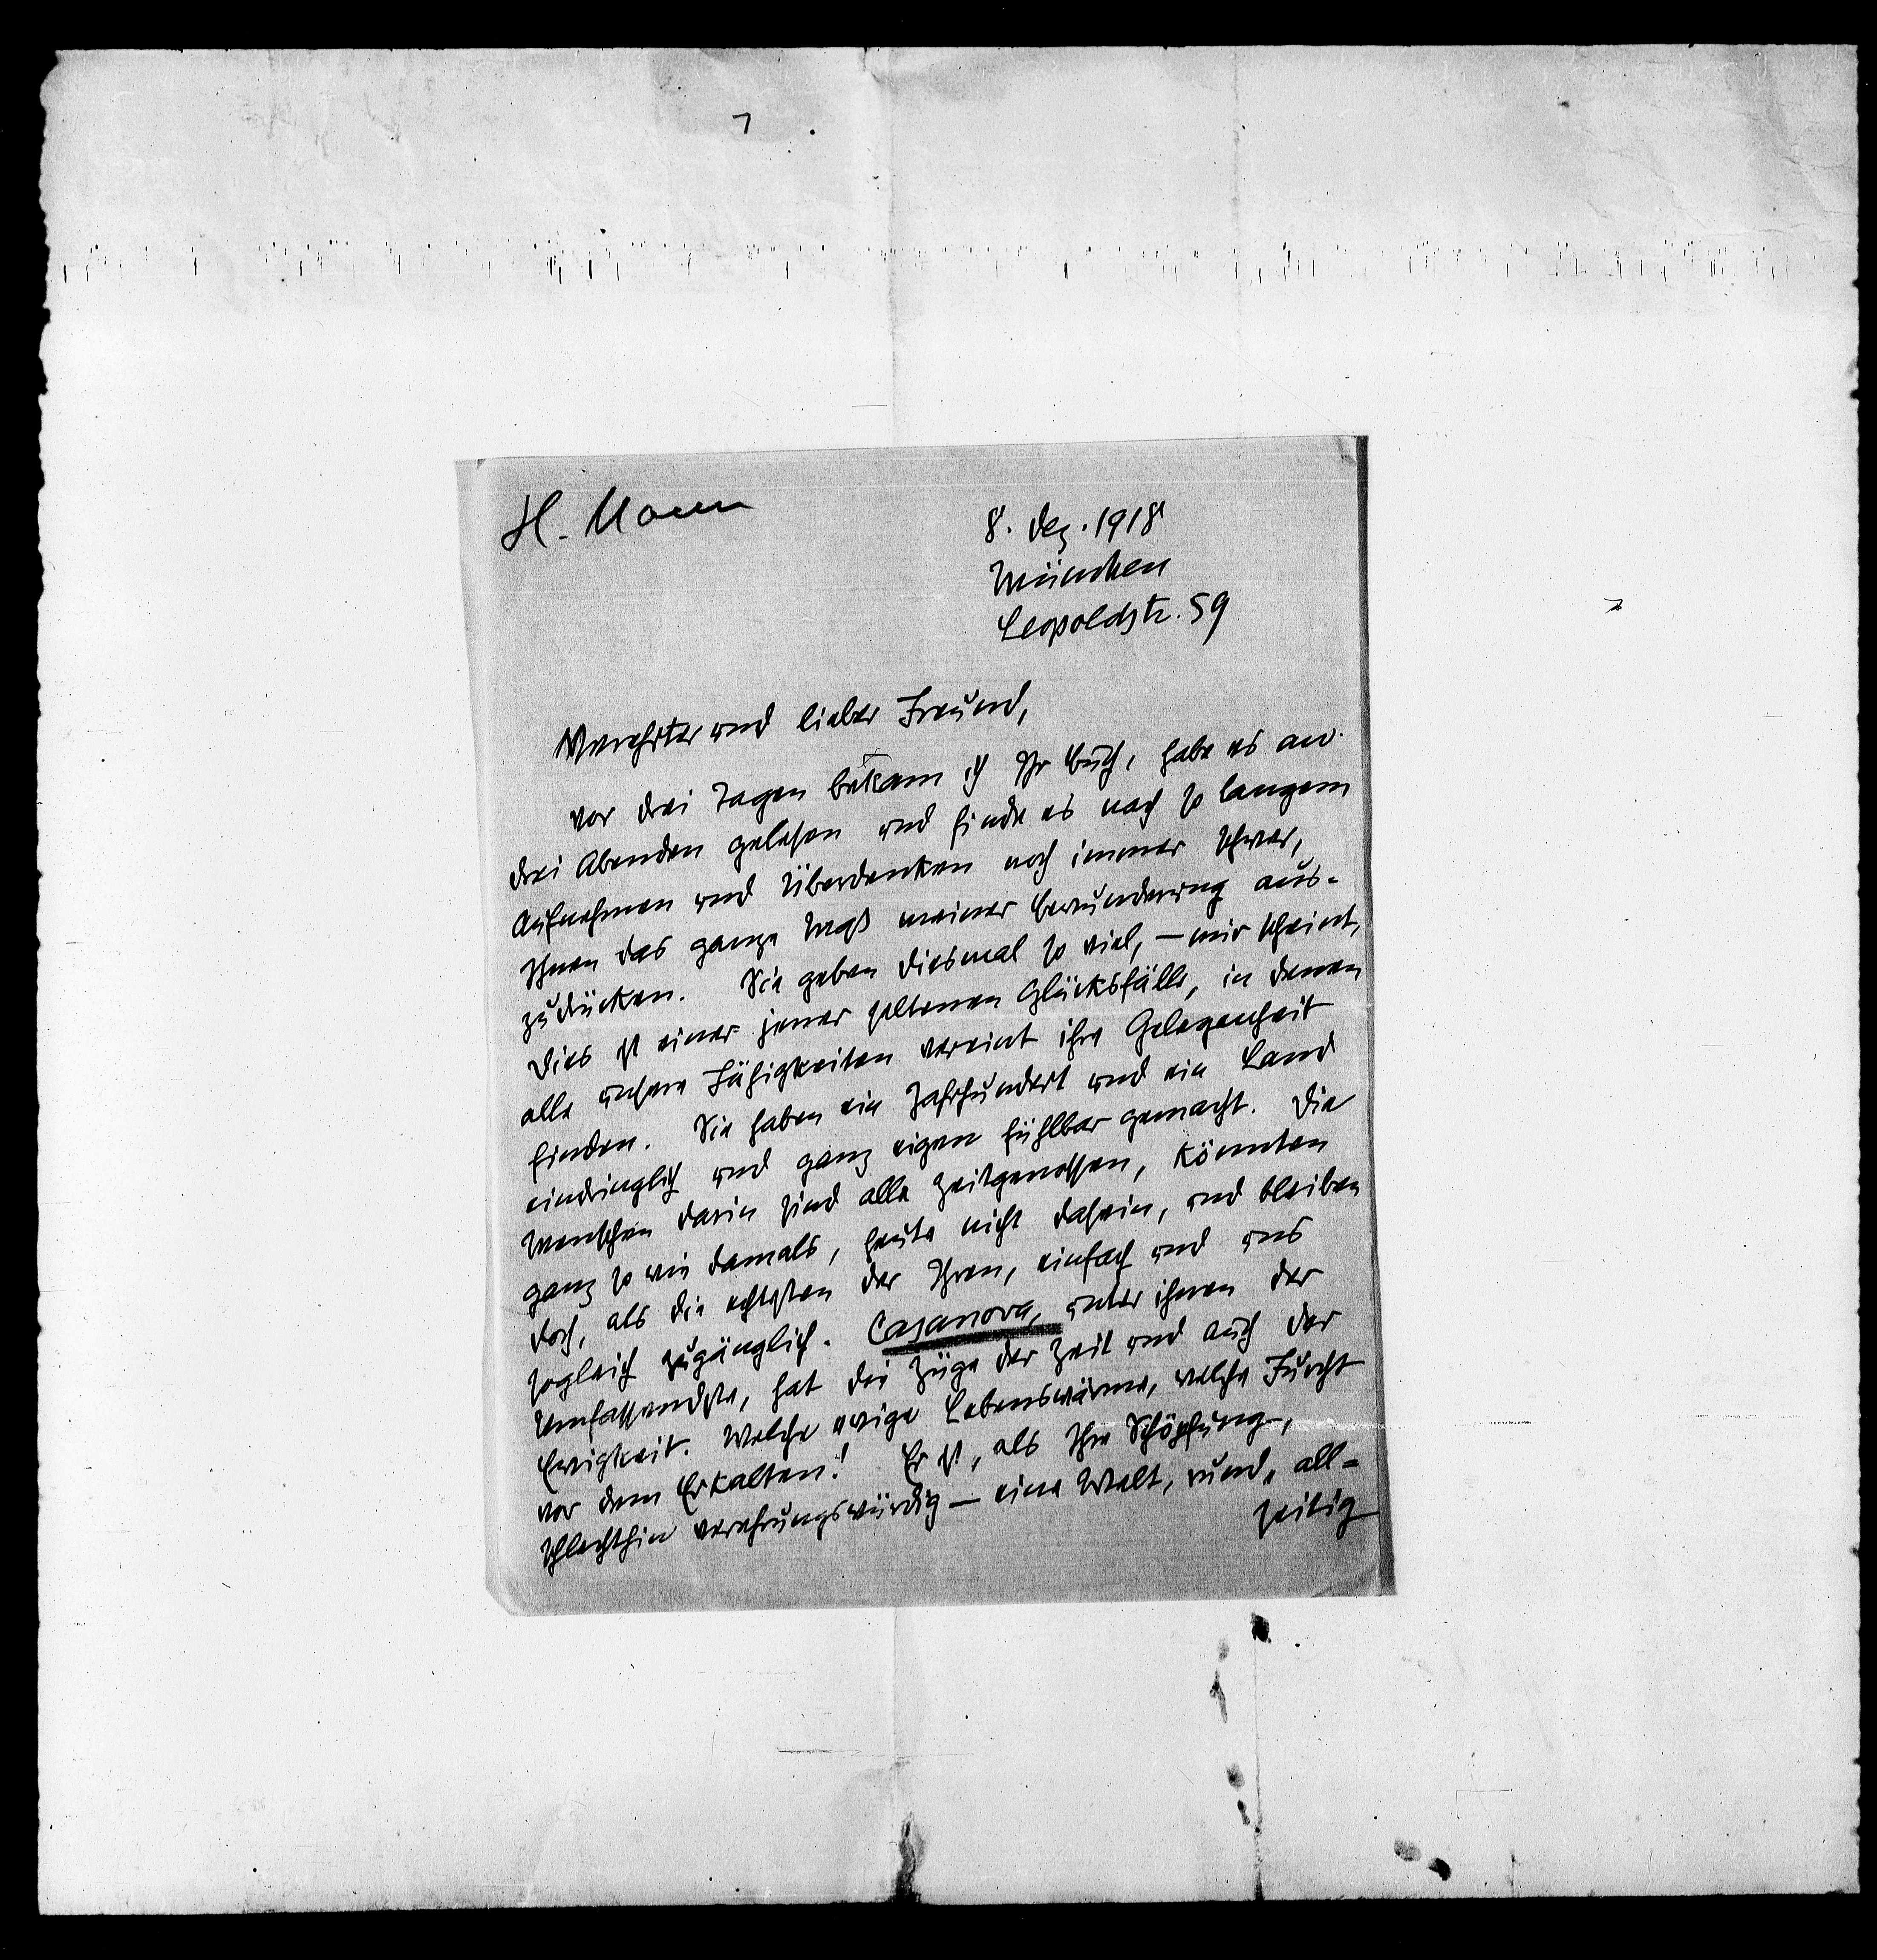 H. Mann
8. Dez. 1918
München
Leopoldstr. 59
Verehrter und lieber Freund,
vor drei Tagen bekam ich Ihr Buch, habe es an
drei Abenden gelesen und finde es nach so langem
Aufnehmen und Überdenken noch immer schwer,
Ihnen das ganze Maß meiner Bewunderung aus-
zudrücken. Sie geben diesmal so viel, – mir scheint,
dies ist einer jener seltenen Glücksfälle, in denen
alle unsere Fähigkeiten vereint ihre Gelegenheit
finden. Sie haben ein Jahrhundert und ein Land
eindringlich und ganz eigen fühlbar gemacht. Die
Menschen darin sind alle Zeitgenossen, könnten
ganz so wie damals, heute nicht dasein, und bleiben
doch, als die echtesten der Ihren, einfach und uns
sogleich zugänglich. Casanova, unter ihnen der
Umfassendste, hat die Züge der Zeit und auch der
Ewigkeit. Welche ewige Lebenswärme, welche Furcht
vor dem Erkalten! Er ist, als Ihre Schöpfung,
schlechthin verehrungswürdig – eine Welt, rund, all-
seitig